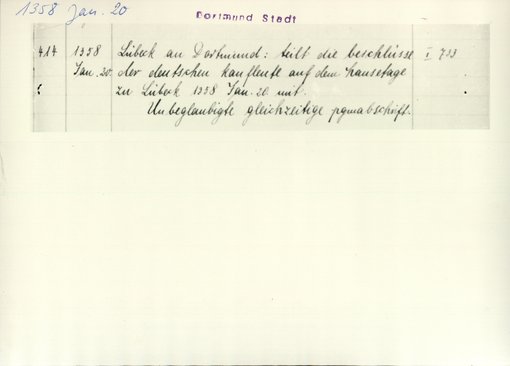 1358 Jan. 20
Dortmund Stadt
414 1358 Lübeck an Dortmund: teilt die beschlüsse I 733
Jan. 20. der deutschen kaufleute auf dem hansetage
zu Lübeck 1358 Jan. 20 mit.
Unbeglaubigte gleichzeitige pgmabschrift.